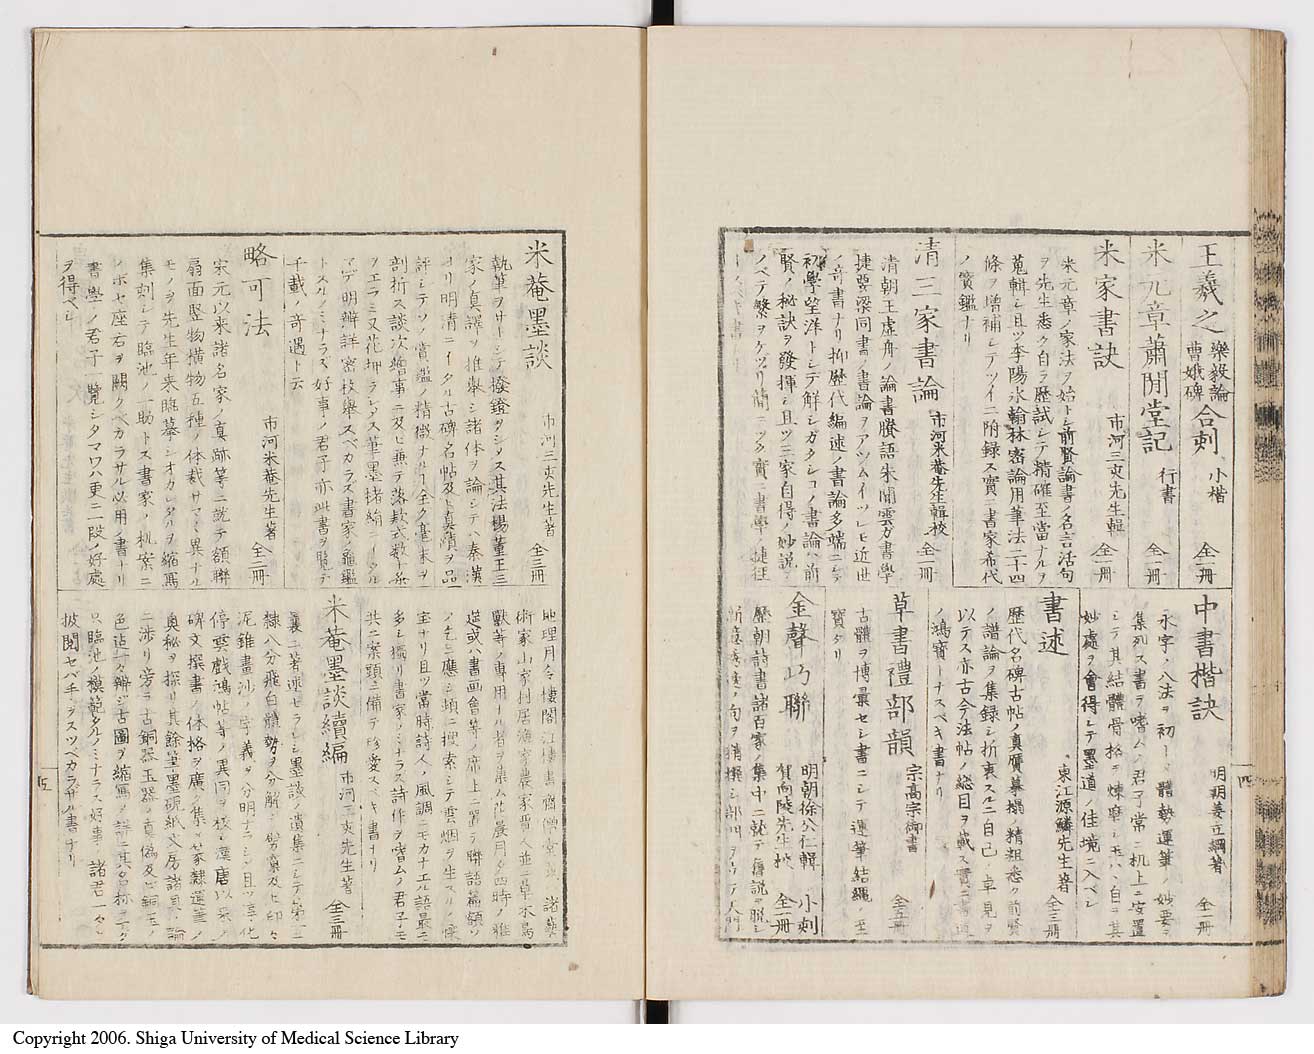 王羲之 樂毅論 曹娥碑 合刻 小楷 全一冊
米元章蕭閒堂記 行書 全一冊
米家書訣 市河三亥先生輯 全一冊
米元章ノ家法ヲ始トシ前賢論書ノ名言活句
ヲ先生悉ク自ラ歴試シテ精確至當ナルヲ
蒐輯シ且ツ李陽氷翰林密論用筆法二十四
條ヲ増補シテツイニ附録ス實ニ書家希代
ノ寶鑑ナリ
清三家書論 市河米菴先生輯校 全一冊
清朝王虚舟ノ論書賸語朱閒雲方書學
捷要梁同書ノ書論ヲアツムイツレモ近世
ノ奇書ナリ抑歴代編述ノ書論多端ニシテ
初學望洋トシテ解シガタシコノ書論ハ前
賢ノ秘訣ヲ發揮シ且ツ三家自得ノ妙説ヲ
ノベテ繁ヲケヅリ簡ニツク實ニ書學ノ捷徑
中書楷訣 明 姜立綱著 全一冊
永字ノ八法ヲ初トシ體勢運筆ノ妙要ヲ
集列ス書ヲ嗜ムノ君子常ニ机上ニ安置
シテ其結體骨格ヲ煉磨シ玉ハヾ自ラ其
妙處ヲ會得シテ墨道ノ佳境ニ入ベシ
書述 東江源鱗先生著 全三冊
歴代名碑古帖ノ真贋摹搨ノ精粗悉ク前賢
ノ譜論ヲ集録シ折衷スルニ自己ノ卓見ヲ
以テス亦古今法帖ノ総目ヲ載ス實ニ書道
ノ鴻寶トナスベキ書ナリ
草書禮部韻 宗高宗御書 全五冊
古體ヲ博彙セシ書ニシテ運筆結縄ノ至
寶タリ
金聲巧聯 明朝徐公仁輯 賀向陵先生校 小刻 全一冊
歴朝詩書諸百家ノ集中ニ就テ舊説ヲ脱シ
四
米菴墨談 市河三亥先生著 全三冊
執筆ヲサトシテ撥鐙タシシス其法楊董王三
家ノ真譯ヲ推擧シ諸体ヲ論シテハ秦漢
ヨリ明清ニイタル古碑名帖及ト真蹟ヲ品
評シテソノ賞鑑ノ精微ナル全ク毫末ヲ
剖析ス談次繪事ニ及ヒ兼テ落款式数
ヲエラミ又花押ヲシメス筆墨楮絹ニイタル
マデ明辨詳密枚擧スベカラズ書家ノ龜鑑
トスルノミナラズ好事ノ君子亦此書ヲ覽テ
千載ノ奇遇ト云
略可法 市河米菴先生著 全二冊
宋元以来諸名家ノ真跡等ニ就テ額聯
扇面竪物横物五種ノ体裁サマ〲異ナル
モノヲ先生年来臨摹シオカレタルヲ縮寫
集刻シテ臨池ノ一助トス書家ノ机案ニ
ノボセ座右ヲ闕クベカラサル以用ノ書ナリ
書學ノ君子一覽シタマワハ更ニ一段ノ好處
ヲ得ベシ
地理月令樓閣江樓書齋僧堂
術家山家村居漁家農家晋人並ニ草木鳥
獸等ノ専用ナル者ヲ集ム花晨月夕四時ノ雅
莚或ハ書画會等ノ席上ニ署ヲ聯語扁額ソ
ノ乞ニ應シ頓ニ捜索シテ雲烟ヲ生スルノ
宝ナリ且ツ當時詩人ノ風調ニモカナエル語最ニ
多シ獨リ書家ノミナラス詩作ヲ嗜ムノ君子モ
共ニ案頭ニ備テ珍愛スベキ書ナリ
米菴墨談續編 市河三亥先生著 全三冊
曩ニ著述セラレシ墨談ノ遺集ニシテ篆
隷八分飛白體勢ヲ分解シ
泥錐畫沙ノ字義ヲ分明ナラシメ且ツ淳化
停雲戯鴻帖等ノ異同ヲ校シ漢唐以来ノ
碑文撰書ノ体格ヲ廣ク集メ篆隷運筆ノ
奥秘ヲ探リ其餘筆墨硯紙文房諸具ノ論
ニ渉リ旁ラ古銅器玉器ノ真偽及ヒ銅玉ノ
色迠一々辨シ古圖ヲ縮寫シ詳ニ其名称ニ
只臨池ノ模範タルノミナラス好事ノ諸君一タヒ
披閲セバ手ヲスツベカラザル書ナリ
Copyright 2006. Shiga University of Medical Science Library